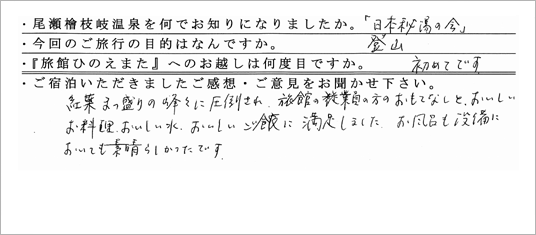 ・尾瀬檜枝岐温泉を何でお知りになりましたか。「日本秘湯の会」
・今回のご旅行の目的はなんですか。 登山
・『旅館ひのえまた』へのお越しは何度目ですか。 初めてです
・ご宿泊いただきましたご感想・ご意見をお聞かせ下さい。
紅葉まっ盛りの峰々に圧倒され、旅館の従業員の方のおもてなしと、おいしい
お料理、おいしい水、おいしいご飯に満足しました。お風呂も設備に
おいても素晴らしかったです